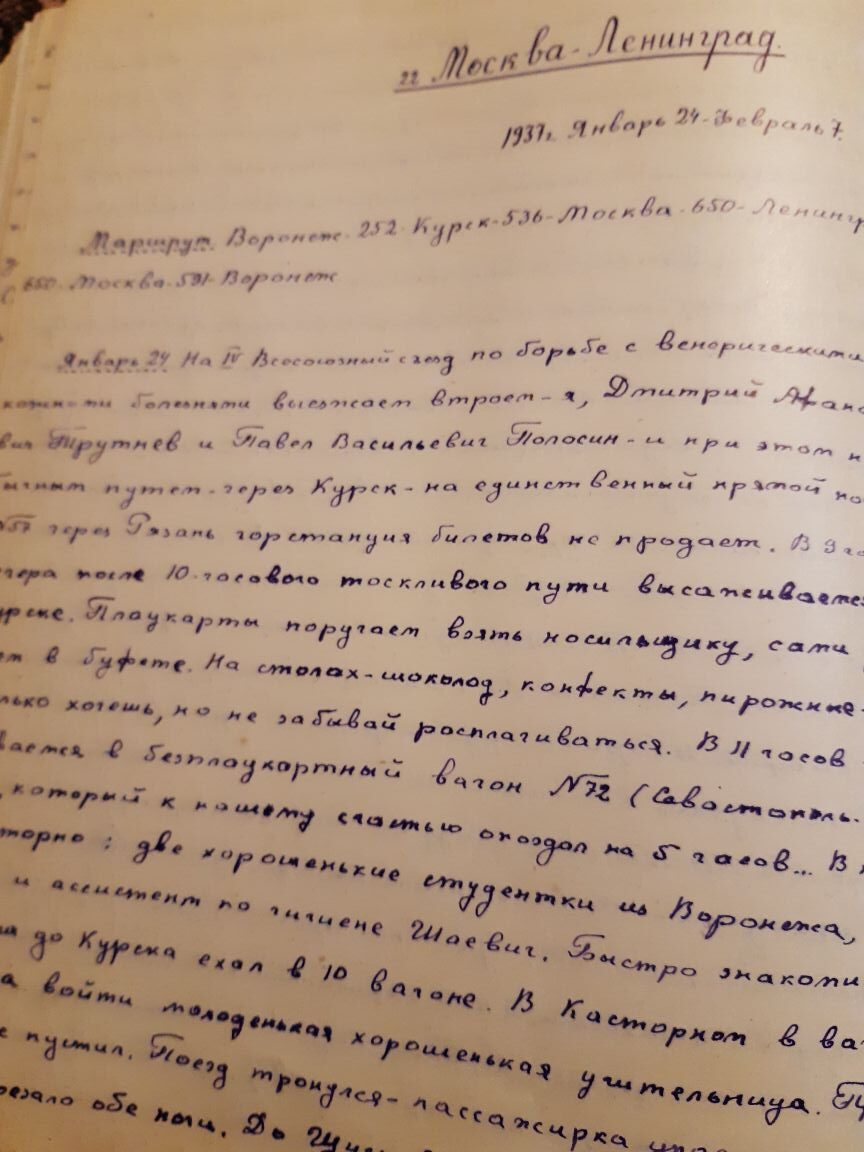 22 Москва-Ленинград.
1937г. Январь 24-Февраль 7.
Маршрут. Воронеж-252-Курск-536-Москва-650-Ленингр
650-Москва-591-Воронеж
Январь 24 На IV Всесоюзный съезд по борьбе с венерическими
кожными болезнями выезжаем втроем-я, Дмитрий Афана
вич Трутнев и Павел Васильевич Полосин-и при этом н
бычным путем-через Курск-на единственный прямой по
№57 через Рязань горстанция билетов не продает. В 9 ча
чера после 10-часового тоскливого пути высаживаемся
урске. Плацкарты поручаем взять носильщику, сами
ем в буфете. На столах-шоколад, конфекты, пирожные-
лько хочешь, но не забывай расплачиваться. В 11 часов
ваемся в безплацкартный вагон №72 (Севастополь-
, который к нашему счастью опоздал на 5 часов... В
торно: две хорошенькие студентки из Воронежа,
и ассистент по гигиене Шаевич. Быстро знакоми
ша до Курска ехал в 10 вагоне. В Касторном в ва
а войти молоденькая хорошенькая учительница. Пр
е пустил. Поезд тронулся-пассажирка упа
резало обе ноги. До